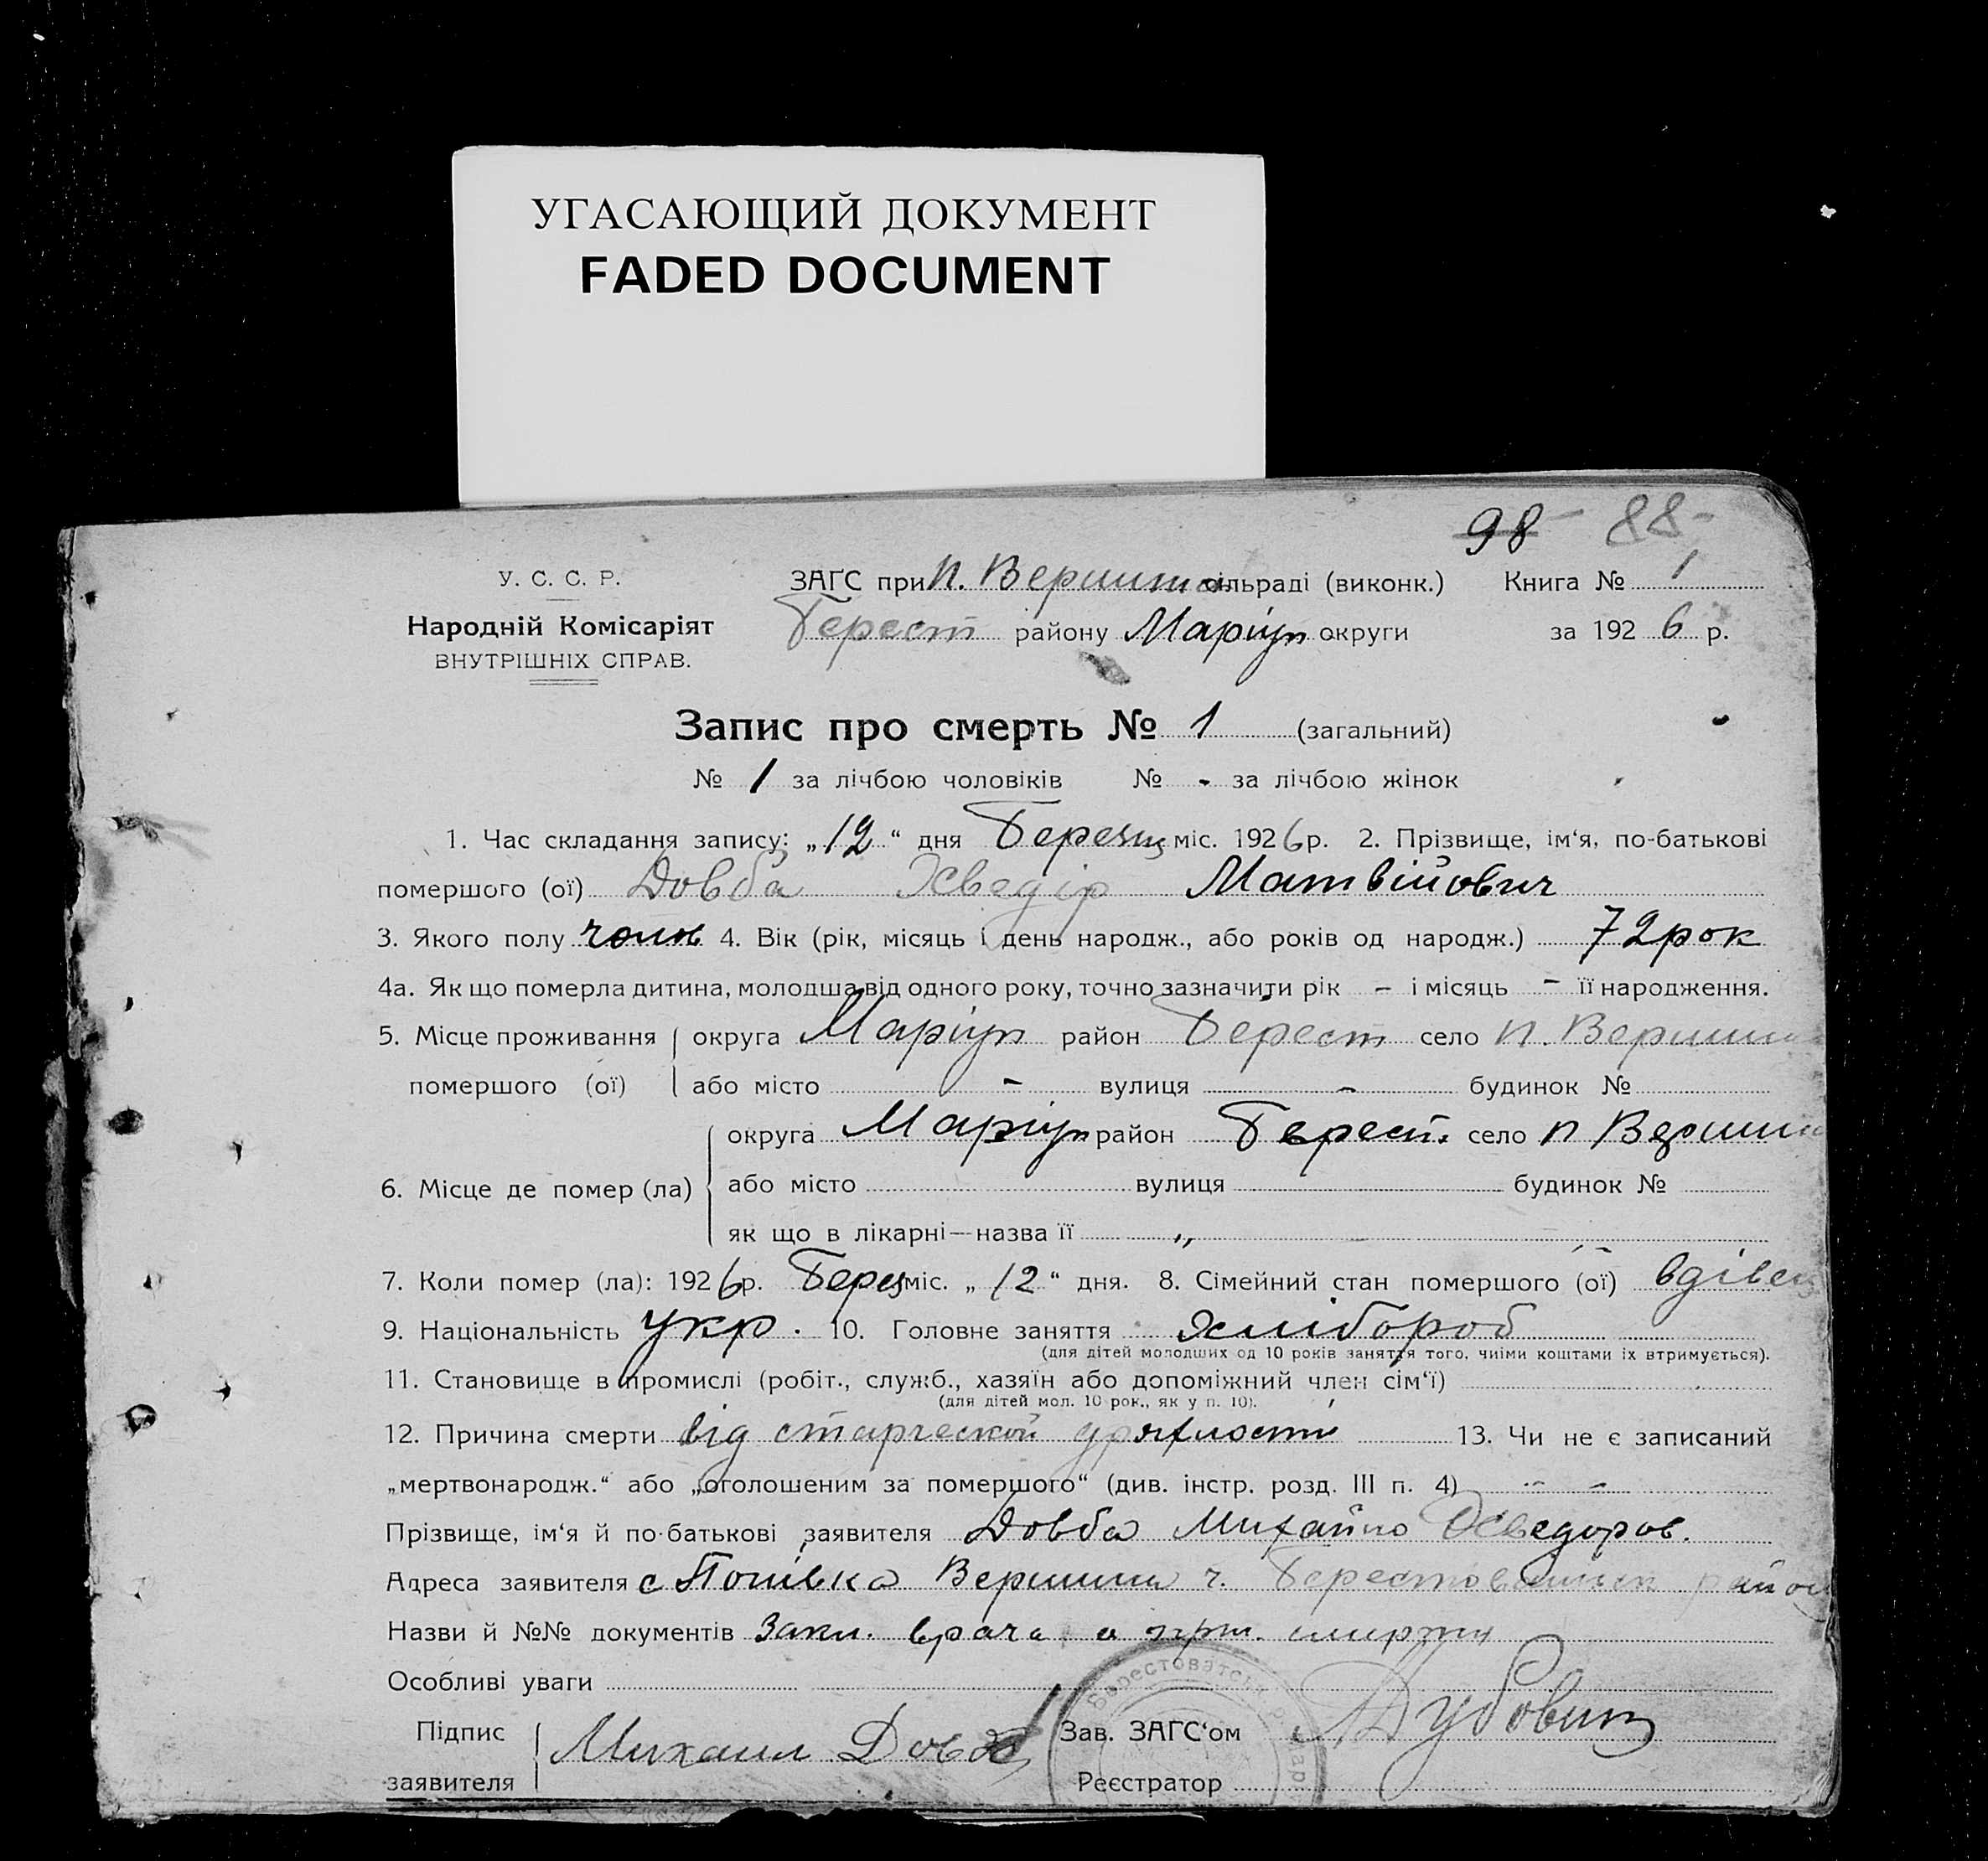 УГАСАЮЩИЙ ДОКУМЕНТ
FADED DOCUMENT
98 - 88 -
У. С. С. Р.
Народній Комісаріят
ВНУТРІШНІХ СПРАВ.
ЗАҐС при п. Вершин сільраді (виконк.) Книга № 1
Берест району Маріуп округи за 1926 р.
Запис про смерть № 1 (загальний)
№ 1 за лічбою чоловіків № - за лічбою жінок
1. Час складання запису: „12“ дня Березц міс. 1926 р. 2. Прізвище, ім‘я, по-батькові
помершого (ої) Довба Хведір Матвійович
3. Якого полу чолов 4. Вік (рік, місяць і день народж., або років од народж.) 72 рок
4а. Як що померла дитина, молодша від одного року, точно зазначити рік - і місяць - її народження.
5. Місце проживання помершого (ої) округа Маріуп район Берест село п. Вершин
або місто - вулиця - будинок №
6. Місце де помер (ла) округа Маріуп район Берест. село п Вершин
або місто вулиця будинок №
як що в лікарні—назва її „
7. Коли помер (ла): 1926 р. Берц міс. „12“ дня. 8. Сімейний стан помершого (ої) вдівец
9. Національність укр. 10. Головне заняття хлібороб
(для дітей молодших од 10 років заняття того, чиїми коштами їх втримується).
11. Становище в промислі (робіт., служб., хазяїн або допоміжний член сім‘ї)
(для дітей мол. 10 рок., як у п. 10).
12. Причина смерти від старческой дряхлости 13. Чи не є записаний
„мертвонародж.“ або „оголошеним за помершого“ (див. інстр. розд. III п. 4) - -
Прізвище, ім‘я й по-батькові заявителя Довба Михайло Хведоров.
Адреса заявителя с Попівка Вершина ч. Берестов район
Назви й №№ документів Закл. врача о смерти
Особливі уваги
Підпис заявителя Михаил Довба
Зав. ЗАҐС‘ом Дубовик
Реєстратор
Берестоватськ